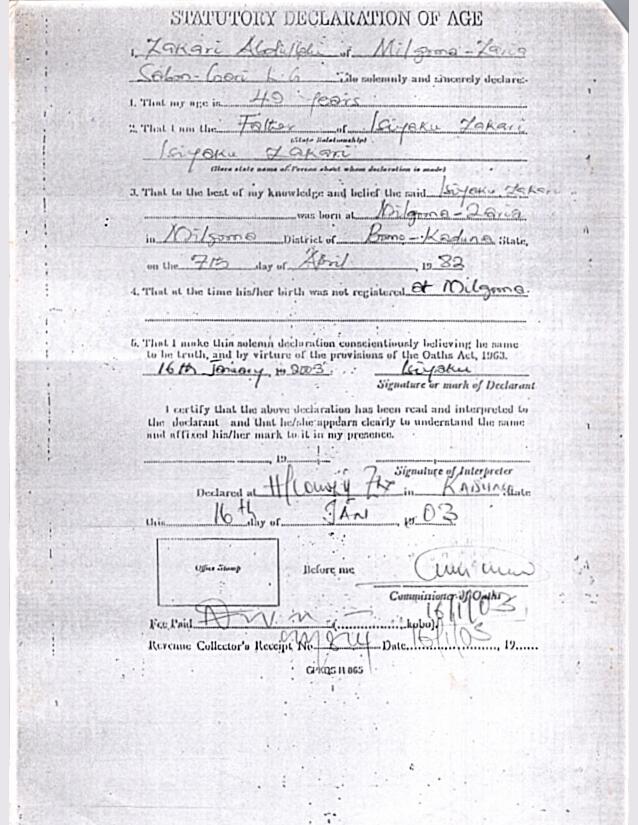 STATUTORY DECLARATION OF AGE
I, Zakari Abdullahi of Milgoma-Zaria
Sabon-Gari L.G do solemnly and sincerely declare:-
1. That my age is 49 years
2. That I am the Father of Isiyaku Zakari
(State Relationship)
Isiyaku Zakari
(Here state name of Person about whom declaration is made)
3. That to the best of my knowledge and belief the said Isiyaku Zakari
was born at Milgoma-Zaria
in Milgoma District of Bomo-Kaduna State,
on the 7th day of April, 1982
4. That at the time his/her birth was not registered at Milgoma.
5. That I make this solemn declaration conscientiously believing he same
to be truth, and by virture of the provisions of the Oaths Act, 1963.
16th January, in 2003. Isiyaku
Signature or mark of Declarant
I certify that the above declaration has been read and interpreted to
the declarant and that he/she appears clearly to understand the same
and affixed his/her mark to it in my presence.
, 19
Signature of Interpreter
Declared at in KADUNA State
this 16th day of JAN, 19 03
Office Stamp Before me
Commissioner of Oaths
16/1/03
Fee Paid ( kobo)
Revenue Collector's Receipt No Date 16/1/03, 19
GPKDS H 865